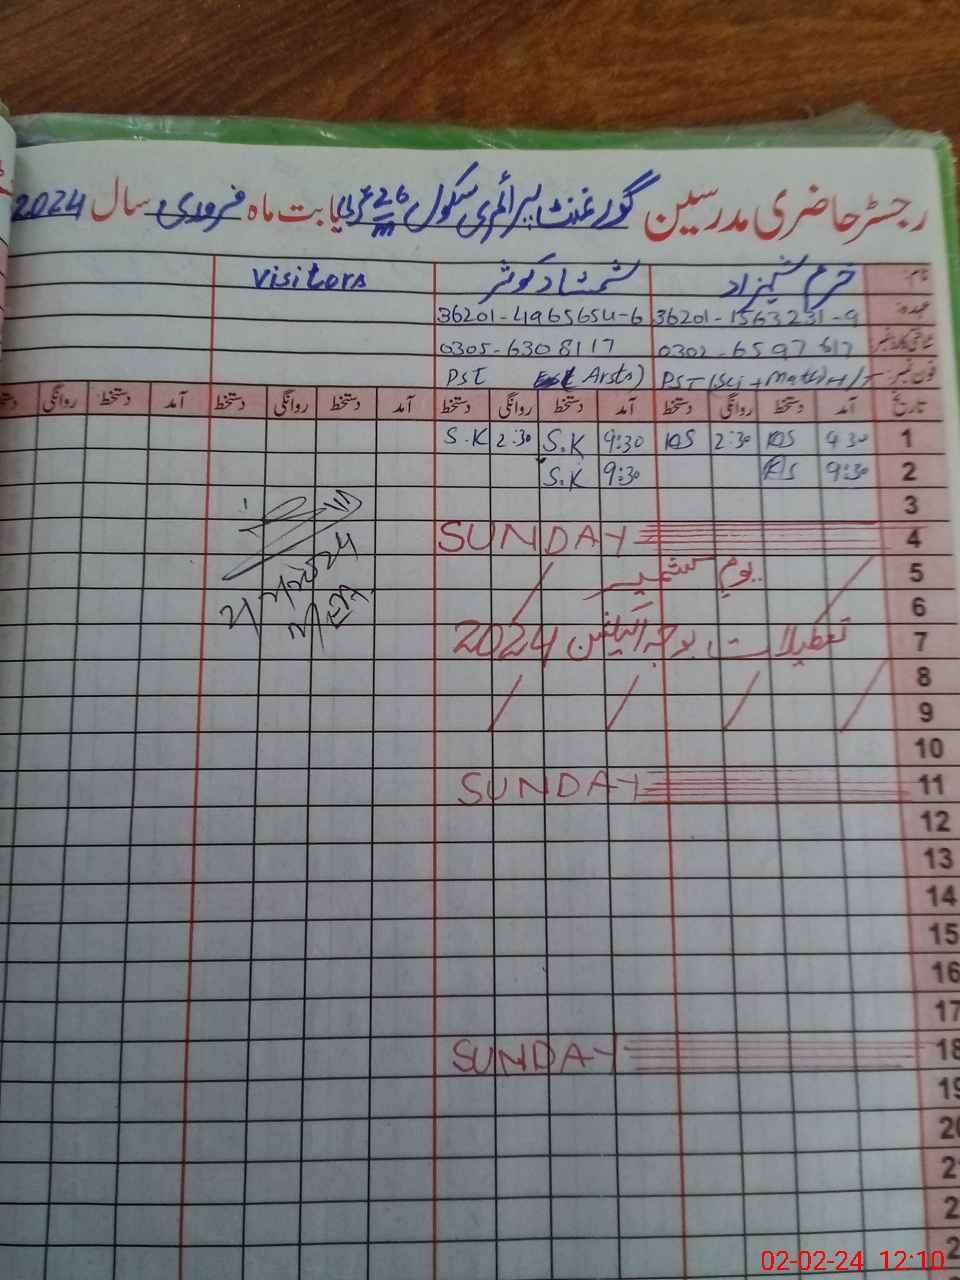 رجسٹر حاضری مدرسین گورنمنٹ پرائمری سکول 26 بابت ماہ فروری سال 2024
نام: خرم شہزاد شمشاد کوثر Visitors
عہدہ: 36201-1563231-9 36201-4965654-6
شناختی کارڈ نمبر 0302-6597617 0305-6308117
فون نمبر: PST (Sci + Math) H/T PST Arts)
تاریخ آمد دستخط روانگی دستخط آمد دستخط روانگی دستخط آمد دستخط روانگی دستخط آمد دستخط روانگی دستخط
1 9:30 KS 2:30 KS 9:30 S.K 2:30 S.K
2 9:30 KS 9:30 S.K
3
4 SUNDAY
5 یوم کشمیر
6
7 تعطیلات بوجہ الیکشن 2024
8
9
10
11 SUNDAY
12
13
14
15
16
17
18 SUNDAY
19
20
02-02-24 12:10